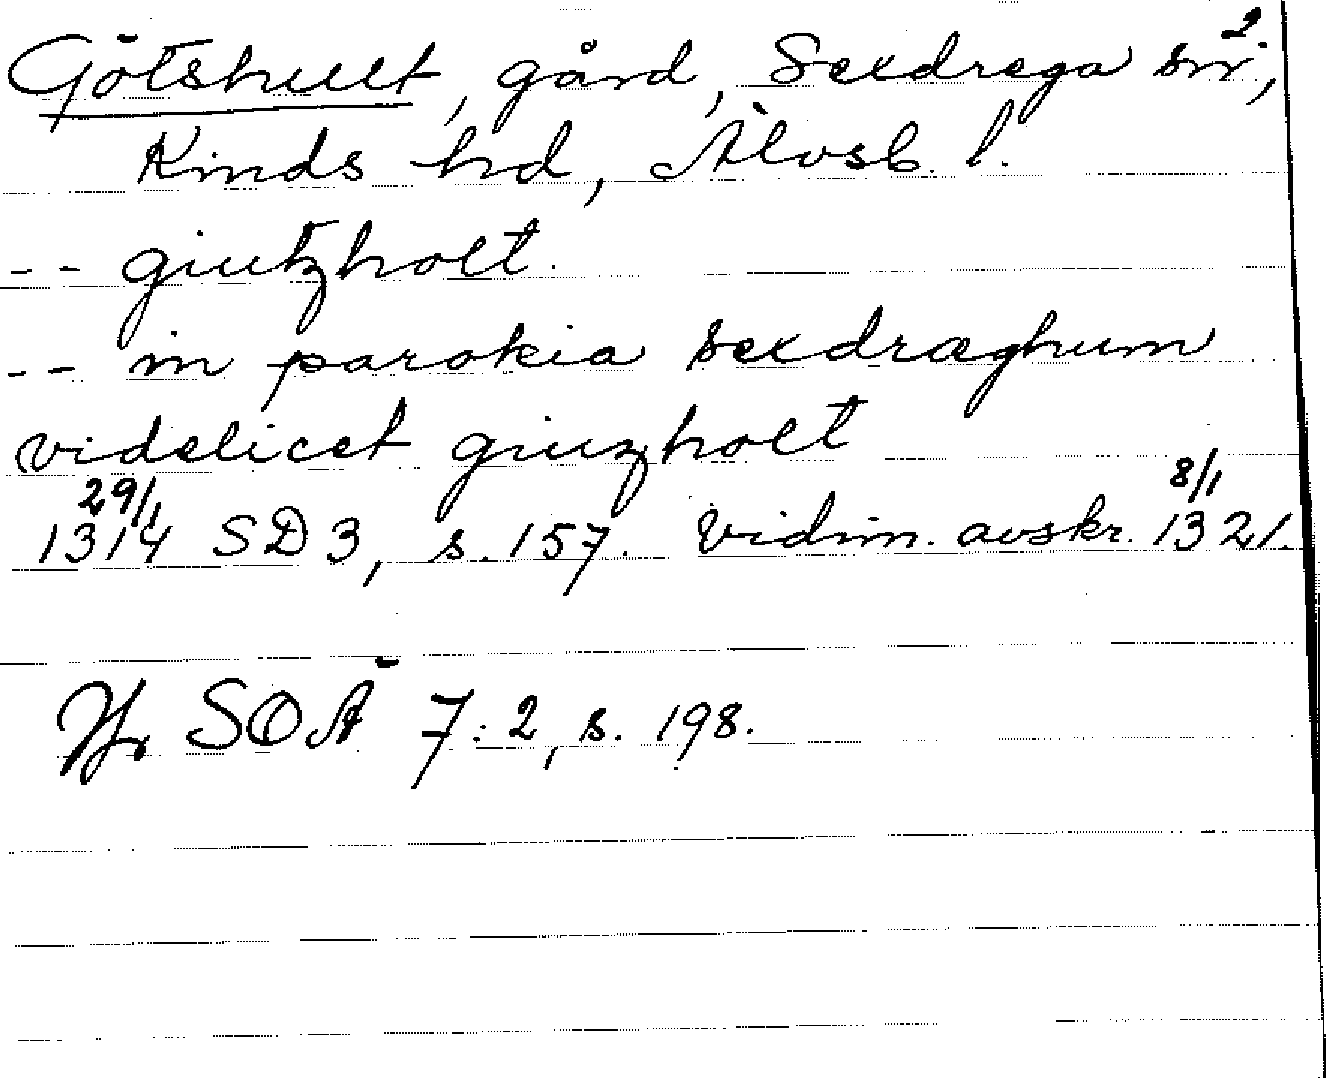 Götshult, gård, Sexdrega sn²,
Kinds hd, Älvsb. l.
-- giutzholt.
-- in parokia sexdræghum
videlicet giuzholt
29/1 8/1
1314 SD 3, s. 157. Vidim. avskr. 1321.
Jfr SOÄ 7:2, s. 198.